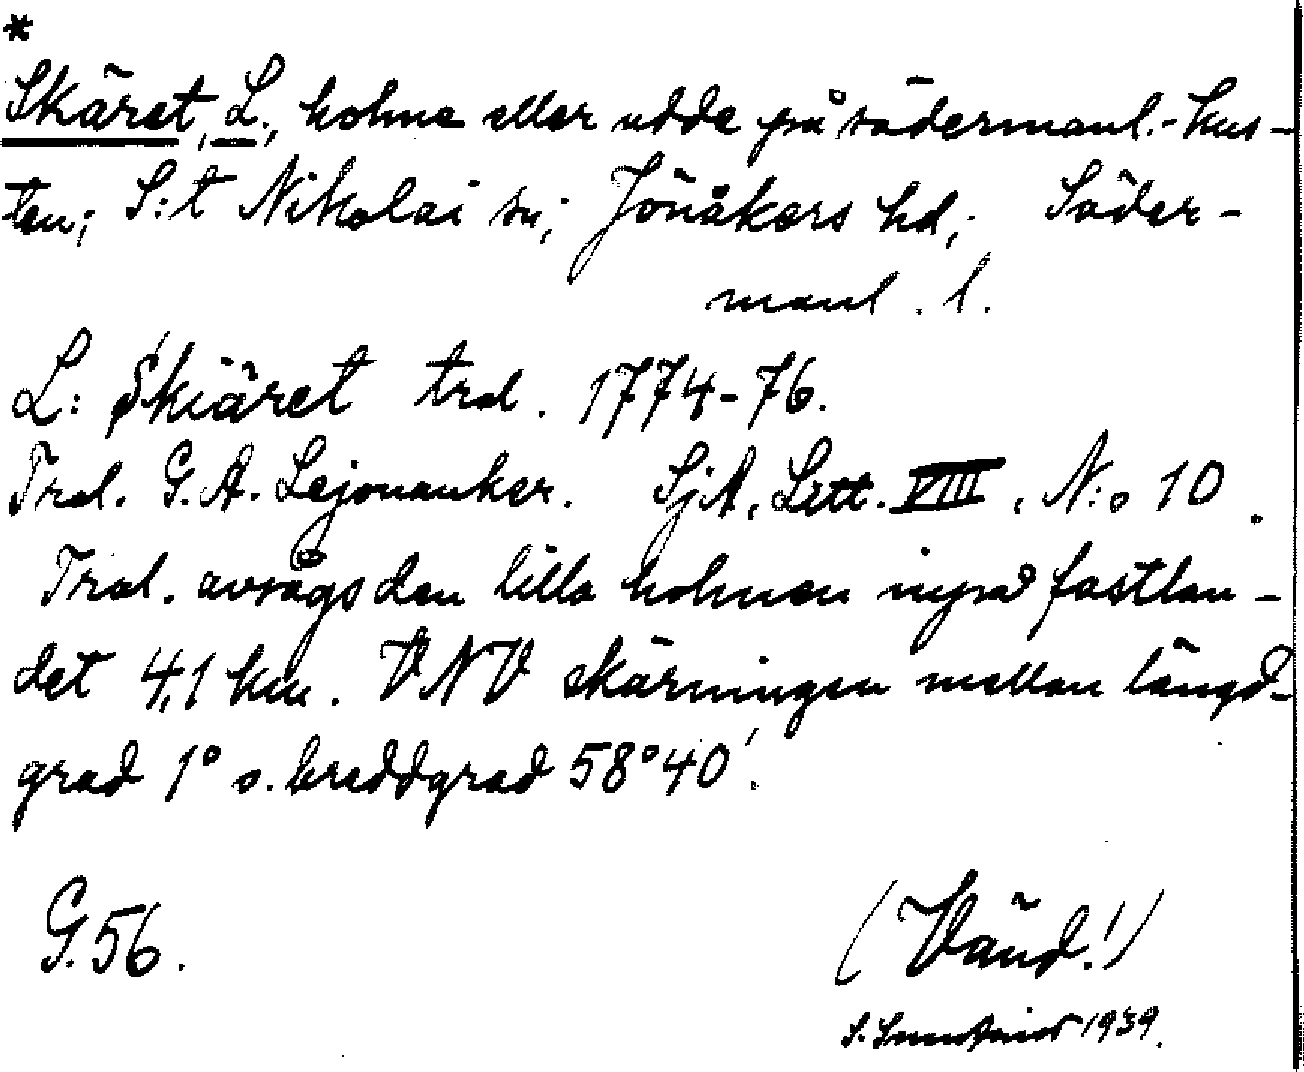 *
Skäret, L., holme eller udde på södermanl.-kus-
ten; S:t Nikolai sn; Jönåkers hd; Söder-
manl. l.
L: Skiäret trol. 1774-76.
Trol. G. A. Lejonanker. SjA, Litt. VIII, N:o 10.
Trol. avsågs den lilla holmen invid fastlan-
det 4,1 km. VNV skärningen mellan längd-
grad 1° o. breddgrad 58°40'.
G. 56.
(Vänd!)
S. 1939.